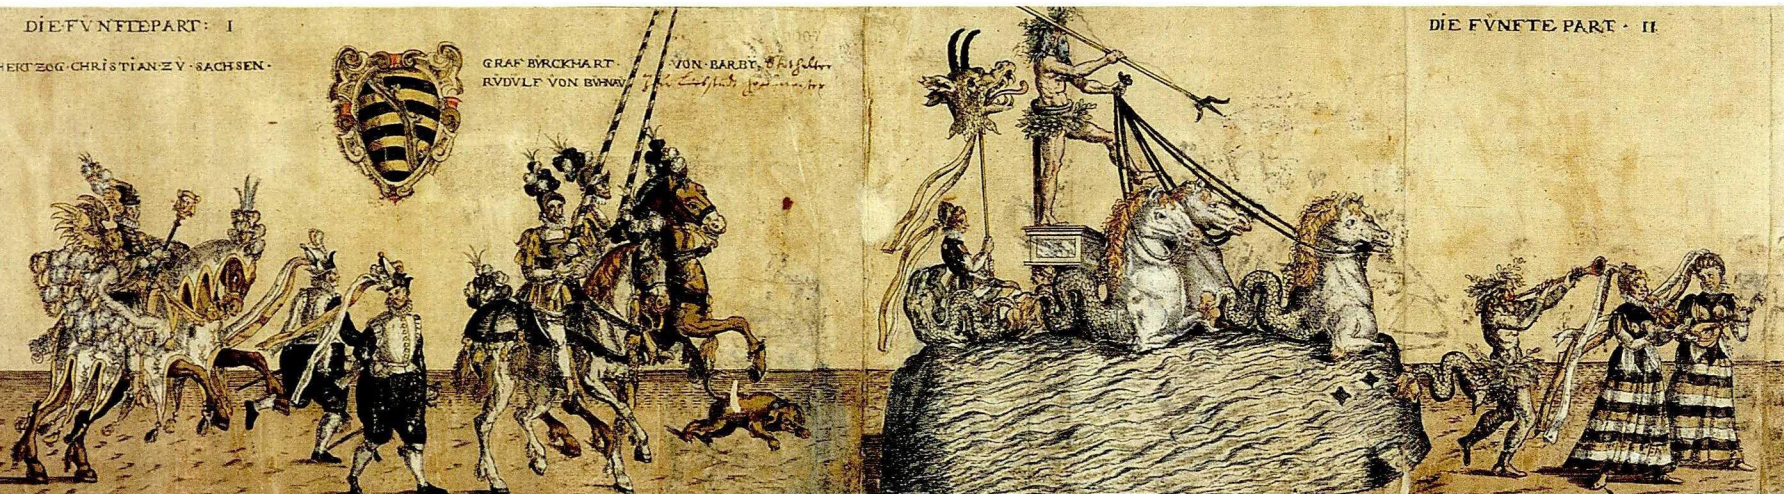 DIE·FVNFTEPART: I
HERTZOG·CHRISTIAN·ZV·SACHSEN·
GRAF BVRCKHART· VON·BARBY,
RVDVLF VON BVHNAV
DIE FVNFTE PART · II